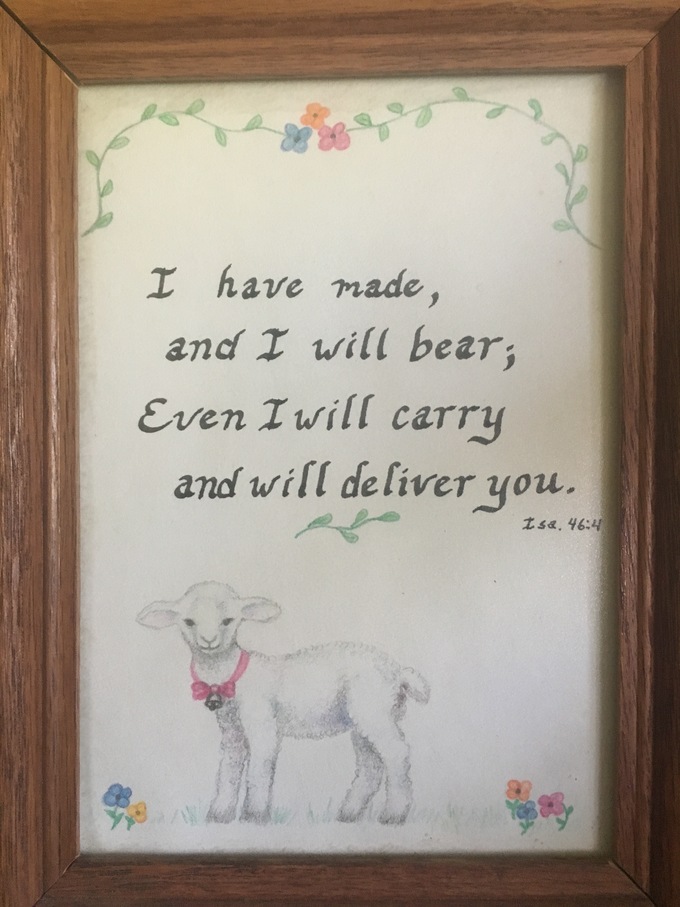 I have made,
and I will bear;
Even I will carry
and will deliver you.
Isa. 46:4